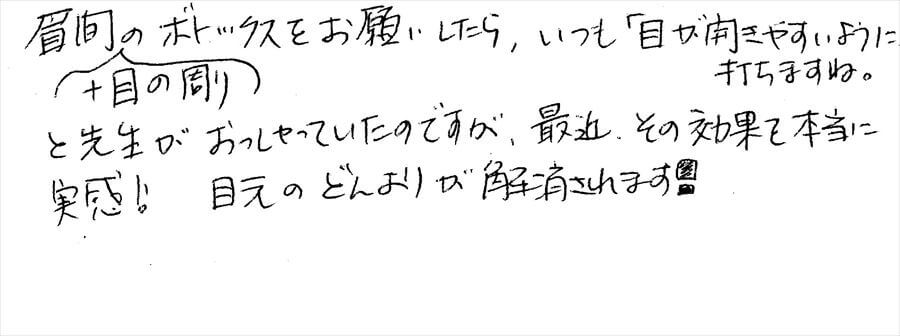 眉間のボトックスをお願いしたら、いつも「目が開きやすいように
(+目の周り)
打ちますね。
と先生がおっしゃっていたのですが、最近、その効果を本当に
実感!! 目元のどんよりが解消されます!!